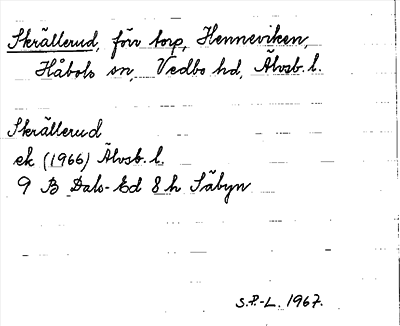 Skrällerud, förv torp, Henneviken,
Håbols sn, Vedbo hd, Älvsb. l.
Skrällerud
ek (1966) Älvsb. l.
9 B Dals-Ed 8 h Säbyn
S.P.-L. 1967.